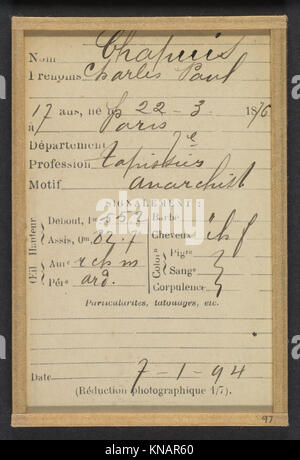 Nom Chapuis
Prénoms Charles Paul
17 ans, né le 22 - 3 1876
à Paris
Département 7e
Profession tapissier
Motif anarchist
SIGNALEMENT
Hauteur Debout, 1m 552 Barbe
Assis, 0m 82.7 Cheveux ch f
Œil Aure r ch m Color Pigre
Péri ard. Sangre
Corpulence
Particularités, tatouages, etc.
Date 7-1-94
(Réduction photographique 1/7).
97
alamy
Image ID: KNAR60
www.alamy.com